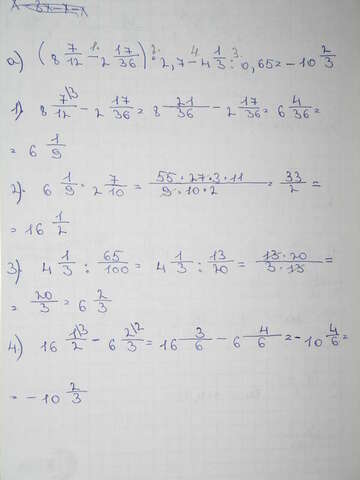 а) (8 7/12 - 2 17/36) · 2,7 - 4 1/3 : 0,65 = -10 2/3
1) 8 7/12 - 2 17/36 = 8 21/36 - 2 17/36 = 6 4/36 =
= 6 1/9
2) 6 1/9 · 2 7/10 = 55·27·3·11/9·10·2 = 33/2 =
= 16 1/2
3) 4 1/3 : 65/100 = 4 1/3 : 13/20 = 13·20/3·13 =
= 20/3 = 6 2/3
4) 16 1/2 - 6 2/3 = 16 3/6 - 6 4/6 = -10 4/6 =
= -10 2/3